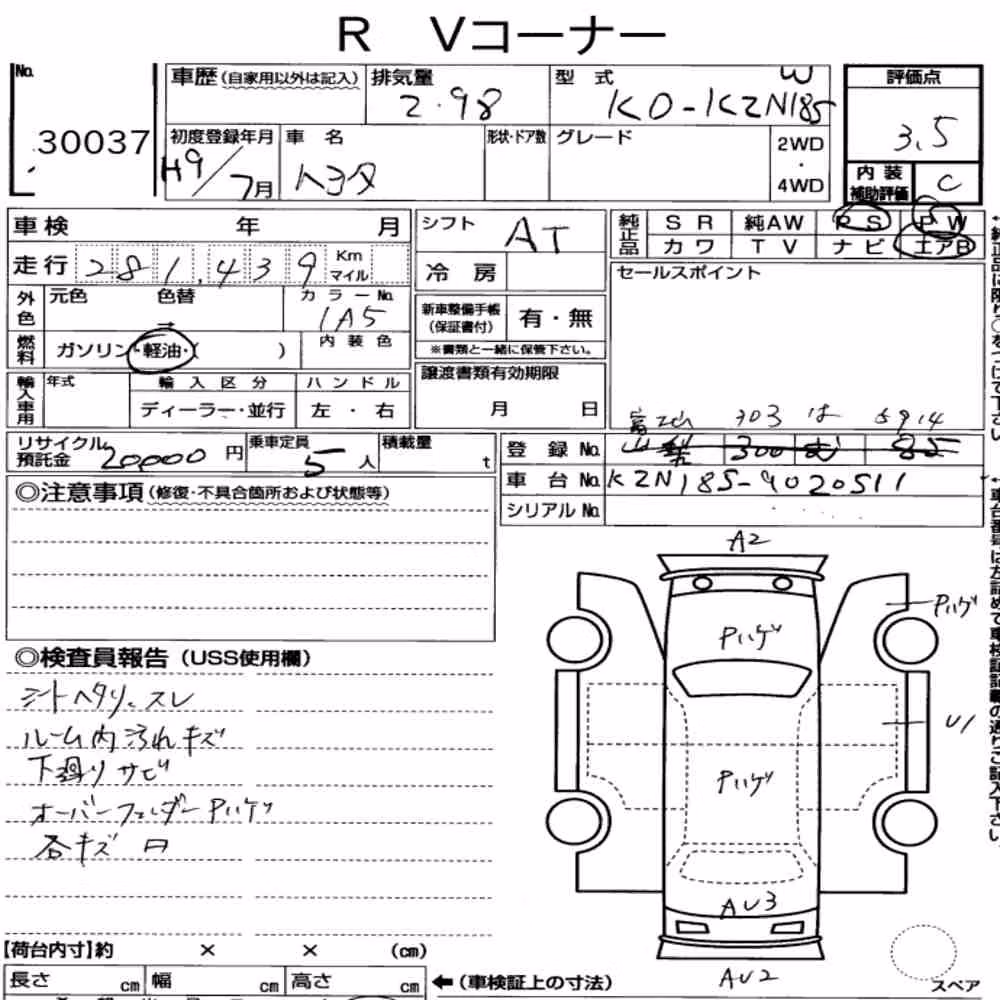 R Vコーナー
No.
30037
車歴(自家用以外は記入)
排気量
2.98
型式
KD-KZN185
W
評価点
3.5
初度登録年月
H9/7月
車名
トヨタ
形状・ドア数
グレード
2WD
・
4WD
内装
補助評価
C
車検 年 月
シフト
AT
純正品
SR 純AW PS PW
カワ TV ナビ エアB
走行 281,439 Km
マイル
冷房
セールスポイント
外色
元色 色替
→
カラーNo.
1A5
新車整備手帳
(保証書付)
有・無
※書類と一緒に保管下さい。
燃料
ガソリン・軽油・( )
内装色
譲渡書類有効期限
月 日
輸入車用
年式
輸入区分
ディーラー・並行
ハンドル
左・右
富山 303 は 5914
リサイクル
預託金 20000 円
乗車定員
5人
積載量
t
登録No. 山梨 300 85
車台No. KZN185-9020511
シリアルNo.
◎注意事項(修復・不具合箇所および状態等)
A2
Pハゲ
Pハゲ
U1
Pハゲ
AU3
AU2
スペア
◎検査員報告(USS使用欄)
シートヘタリ、スレ
ルーム内汚れキズ
下廻りサビ
オーバーフェンダーPハゲ
各キズ
【荷台内寸】約 × × (cm)
長さ cm 幅 cm 高さ cm
←(車検証上の寸法)